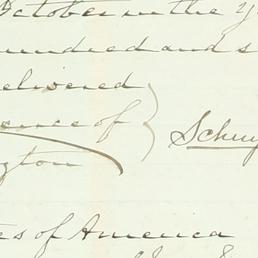 October in the y
hundred and s
elivered
ence of
gton
Schuy
es of America